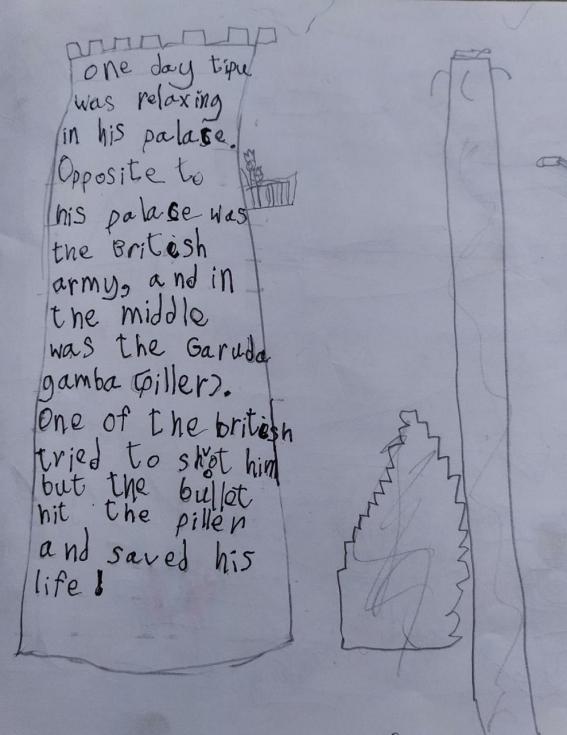 one day tipu
was relaxing
in his palace.
Opposite to
his palace was
the British
army, and in
the middle
was the Garuda
gamba (piller).
One of the british
tried to shot him
but the bullet
hit the piller
and saved his
life!